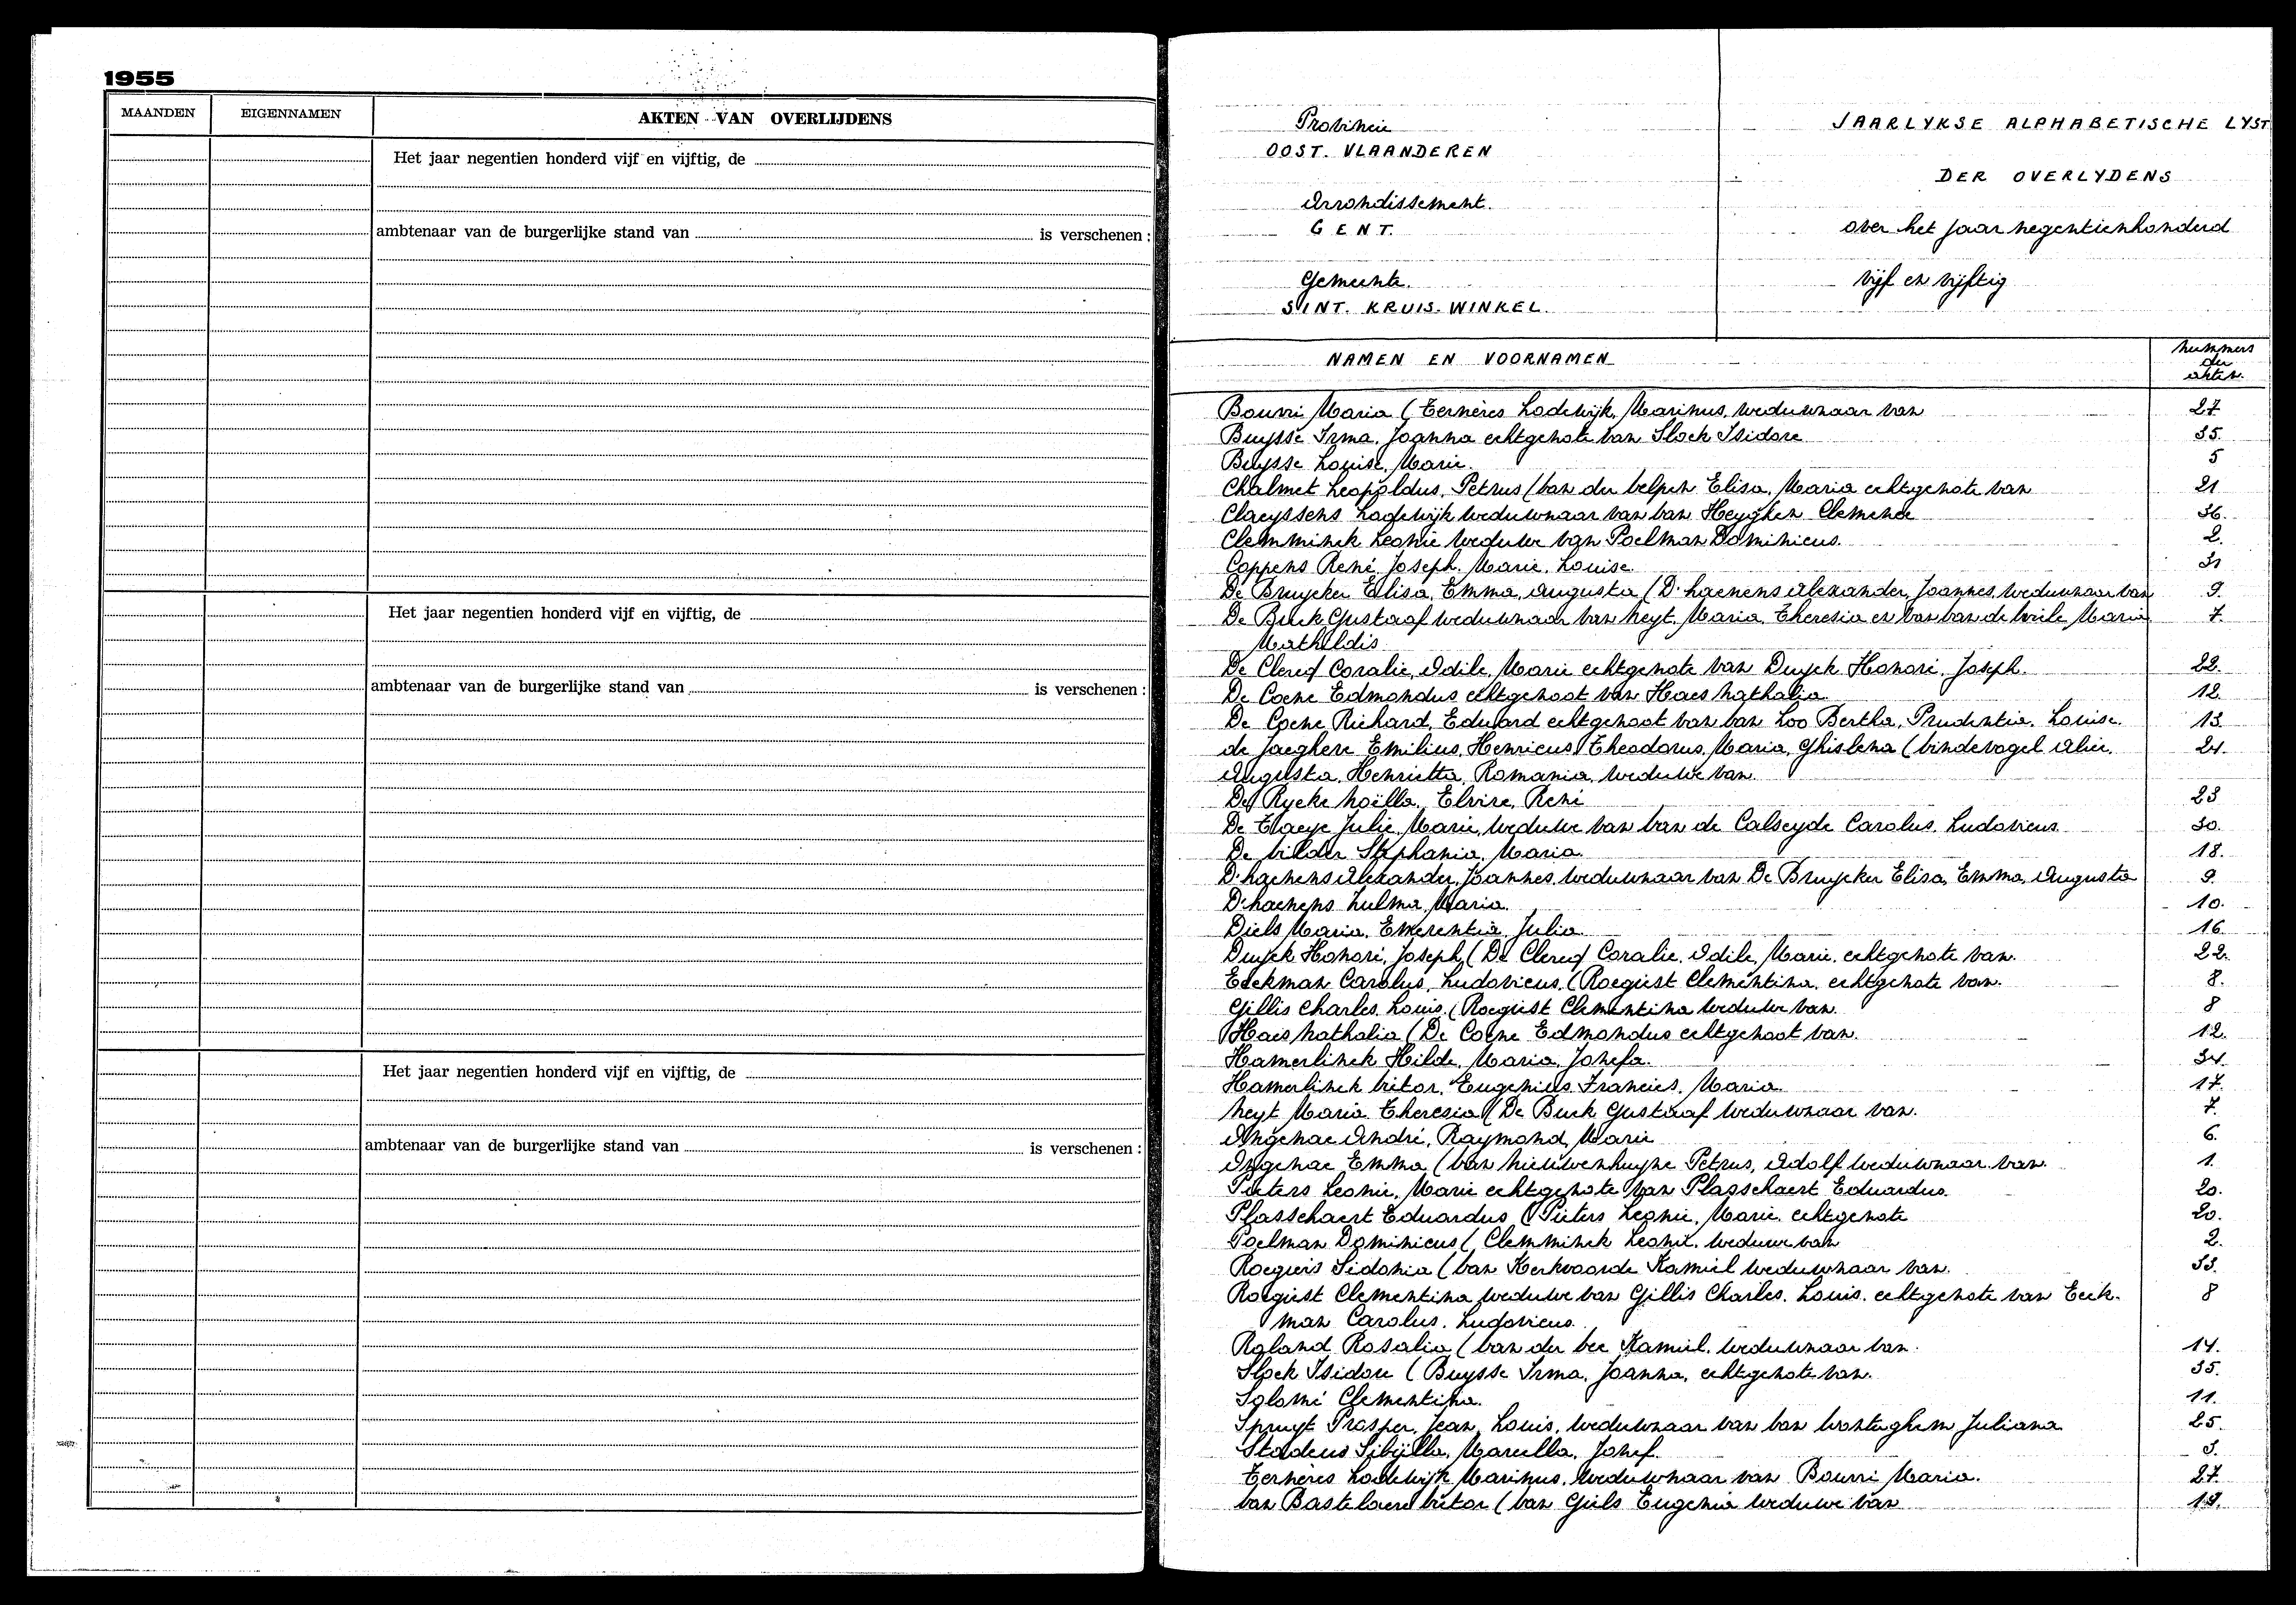 1955
MAANDEN EIGENNAMEN AKTEN VAN OVERLIJDENS
Het jaar negentien honderd vijf en vijftig, de
ambtenaar van de burgerlijke stand van is verschenen :
Het jaar negentien honderd vijf en vijftig, de
ambtenaar van de burgerlijke stand van is verschenen :
Het jaar negentien honderd vijf en vijftig, de
ambtenaar van de burgerlijke stand van is verschenen :
Provincie
OOST. VLAANDEREN
Arrondissement.
GENT.
Gemeente.
SINT. KRUIS. WINKEL.
JAARLYKSE ALPHABETISCHE LYST
DER OVERLYDENS
over het jaar negentienhonderd
vijf en vijftig
NAMEN EN VOORNAMEN
nummers
der
akten.
Bourri Maria (Ternères Lodewijk, Marinus, weduwnaar van 27
Buysse Irma, Joanna echtgenote van Slock Isidore 35.
Buysse Louise, Marie. 5
Chalmet Leopoldus, Petrus (van der velpen Elisa, Maria echtgenote van 21
Claeyssens Lodewijk weduwnaar van van Heyghen Clemence 36.
Clemminck Leonie weduwe van Poelman Dominicus. 2.
Coppens René, Joseph, Marie, Louise. 31
De Bruycker Elisa, Emma, Augusta (D'haenens Alexander, Joannes, weduwnaar van 9.
De Buck Gustaaf weduwnaar van Neyt, Maria, Theresia en van van de Wiele Maria 7.
Mathildis
De Clercq Coralie, Odile, Marie echtgenote van Duyck Honoré, Joseph. 22.
De Coene Edmondus echtgenoot van Haes Nathalia. 12.
De Coene Richard, Eduard echtgenoot van van Loo Bertha, Prudentia, Louise. 13.
de Jaeghere Emilius, Henricus, Theodorus, Maria, Ghislena (Vindevogel Alice. 24.
Augusta, Henrietta, Romania, weduwe van.
De Rycke Noëlla, Elvire, René 23
De Tlaeye Julie, Marie, weduwe van van de Calseyde Carolus, Ludovicus. 30.
De Vilder Stephania, Maria. 18.
D'haenens Alexander, Joannes, weduwnaar van De Bruycker Elisa, Emma, Augusta 9.
D'haenens Zulma, Maria. 10.
Diels Maria, Emerentia, Julia. 16.
Duyck Honoré, Joseph, (De Clercq Coralie, Odile, Marie, echtgenote van. 22.
Eeckman Carolus, Ludovicus, (Roegiest Clementina, echtgenote van. 8.
Gillis Charles, Louis, (Roegiest Clementina weduwe van. 8
Haes Nathalia (De Coene Edmondus echtgenoot van. 12.
Hamerlinck Hilde, Maria, Jozefa. 34.
Hamerlinck Victor, Eugenius, Francies, Maria. 17.
Neyt Maria, Theresia (De Buck Gustaaf weduwnaar van. 7.
Ongenae André, Raymond, Marie 6.
Ongenae Emma (van Nieuwenhuyse Petrus, Adolf weduwnaar van. 1.
Pieters Leonie, Marie echtgenote van Plasschaert Eduardus. 20.
Plasschaert Eduardus (Pieters Leonie, Marie, echtgenote 20.
Poelman Dominicus (Clemminck Leonie, weduwe van 2.
Roegiers Sidonia (van Kerkvoorde Kamiel weduwnaar van. 33.
Roegiest Clementina weduwe van Gillis Charles, Louis, echtgenote van Eeck- 8
man Carolus, Ludovicus.
Roland Rosalia (van der Vee Kamiel, weduwnaar van. 14.
Slock Isidore (Buysse Irma, Joanna, echtgenote van. 35.
Solomé Clementina. 11.
Spruyt Prosper, Jean, Louis, weduwnaar van van Wonterghem Juliana 25.
Stadeus Sibylla, Marcella, Jozef. 3.
Ternères Lodewijk, Marinus, weduwnaar van Bourri Maria. 27.
van Bastelaere Victor (van Gyels Eugenia weduwe van 19.